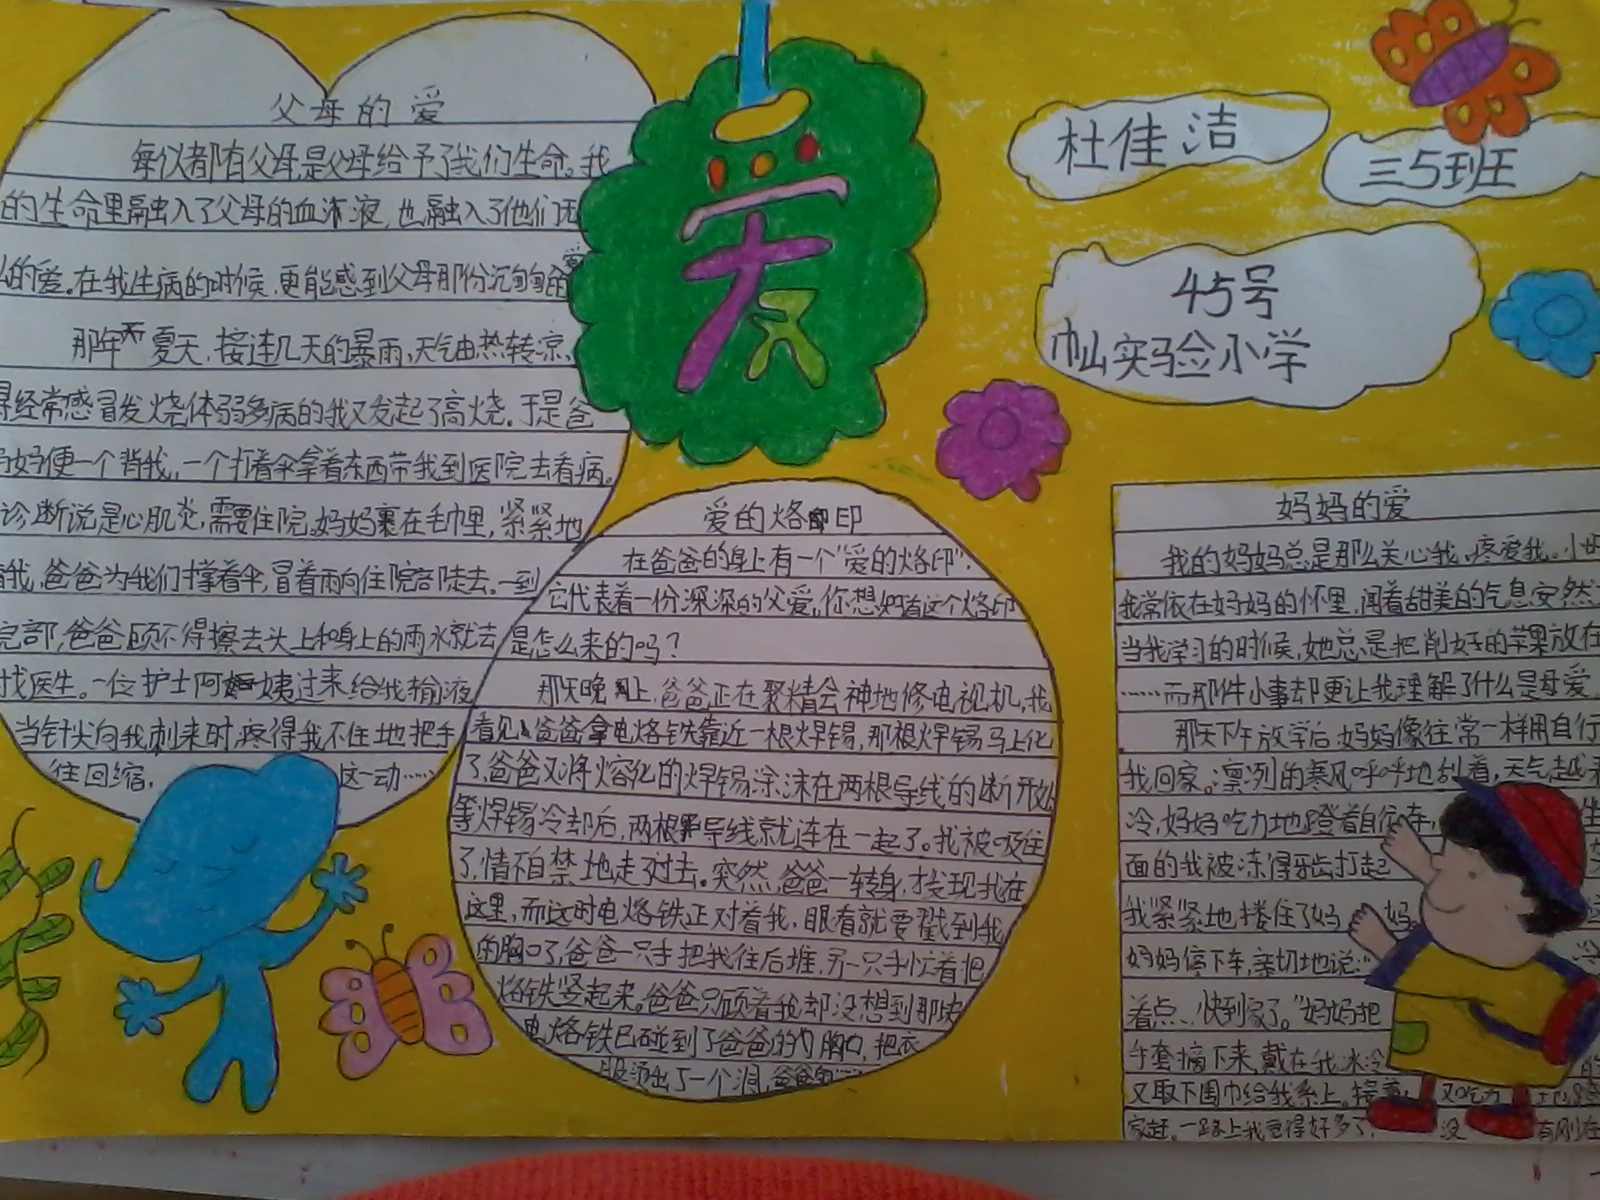 父母的爱
每人都有父母,是父母给予了我们生命。我
的生命里融入了父母的血液,也融入了他们无
的爱。在我生病的时候,更能感到父母那份沉甸甸的爱
那年夏天,接连几天的暴雨,天气由热转凉,
得经常感冒发烧体弱多病的我又发起了高烧。于是爸
妈妈便一个背我,一个打着伞拿着东西带我到医院去看病。
诊断说是心肌炎,需要住院。妈妈裹在毛巾里,紧紧地
着我,爸爸为我们撑着伞,冒着雨向住院部走去。一到
院部,爸爸顾不得擦去头上和身上的雨水就去
找医生。一位护士阿姨过来给我输液
当针尖向我刺来时,疼得我不住地把手
往回缩.这一动……
爱
杜佳洁
三5班
45号
巾山实验小学
爱的烙印
在爸爸的身上有一个“爱的烙印”,
它代表着一份深深的父爱。你想知道这个烙印
是怎么来的吗?
那天晚上,爸爸正在聚精会神地修电视机,我
看见爸爸拿电烙铁靠近一根焊锡,那根焊锡马上化
了,爸爸又将熔化的焊锡涂沫在两根导线的断开处
等焊锡冷却后,两根导线就连在一起了。我被吸住
了,情不自禁地走了过去。突然,爸爸一转身,才发现我在
这里,而这时电烙铁正对着我,眼看就要戳到我
的胸口了,爸爸一只手把我往后推,另一只手忙着把
烙铁竖起来。爸爸只顾着我却没想到那块
电烙铁已碰到了爸爸的胸口,把衣
服烫出了一个洞,爸爸
妈妈的爱
我的妈妈总是那么关心我、疼爱我。小时
我常依在妈妈的怀里,闻着甜美的气息安然
当我学习的时候,她总是把削好的苹果放在
……而那件小事却更让我理解了什么是母爱
那天下午放学后,妈妈像往常一样用自行
我回家。凛冽的寒风呼呼地刮着,天气越来
冷,妈妈吃力地蹬着自行车,
面的我被冻得牙齿打起
我紧紧地搂住了妈妈
妈妈停下车,亲切地说:“
着点…快到家了。”妈妈把
手套摘下来,戴在我冰冷
又取下围巾给我系上。接着,又吃力
家赶。一路上我觉得好多了,没有刚在